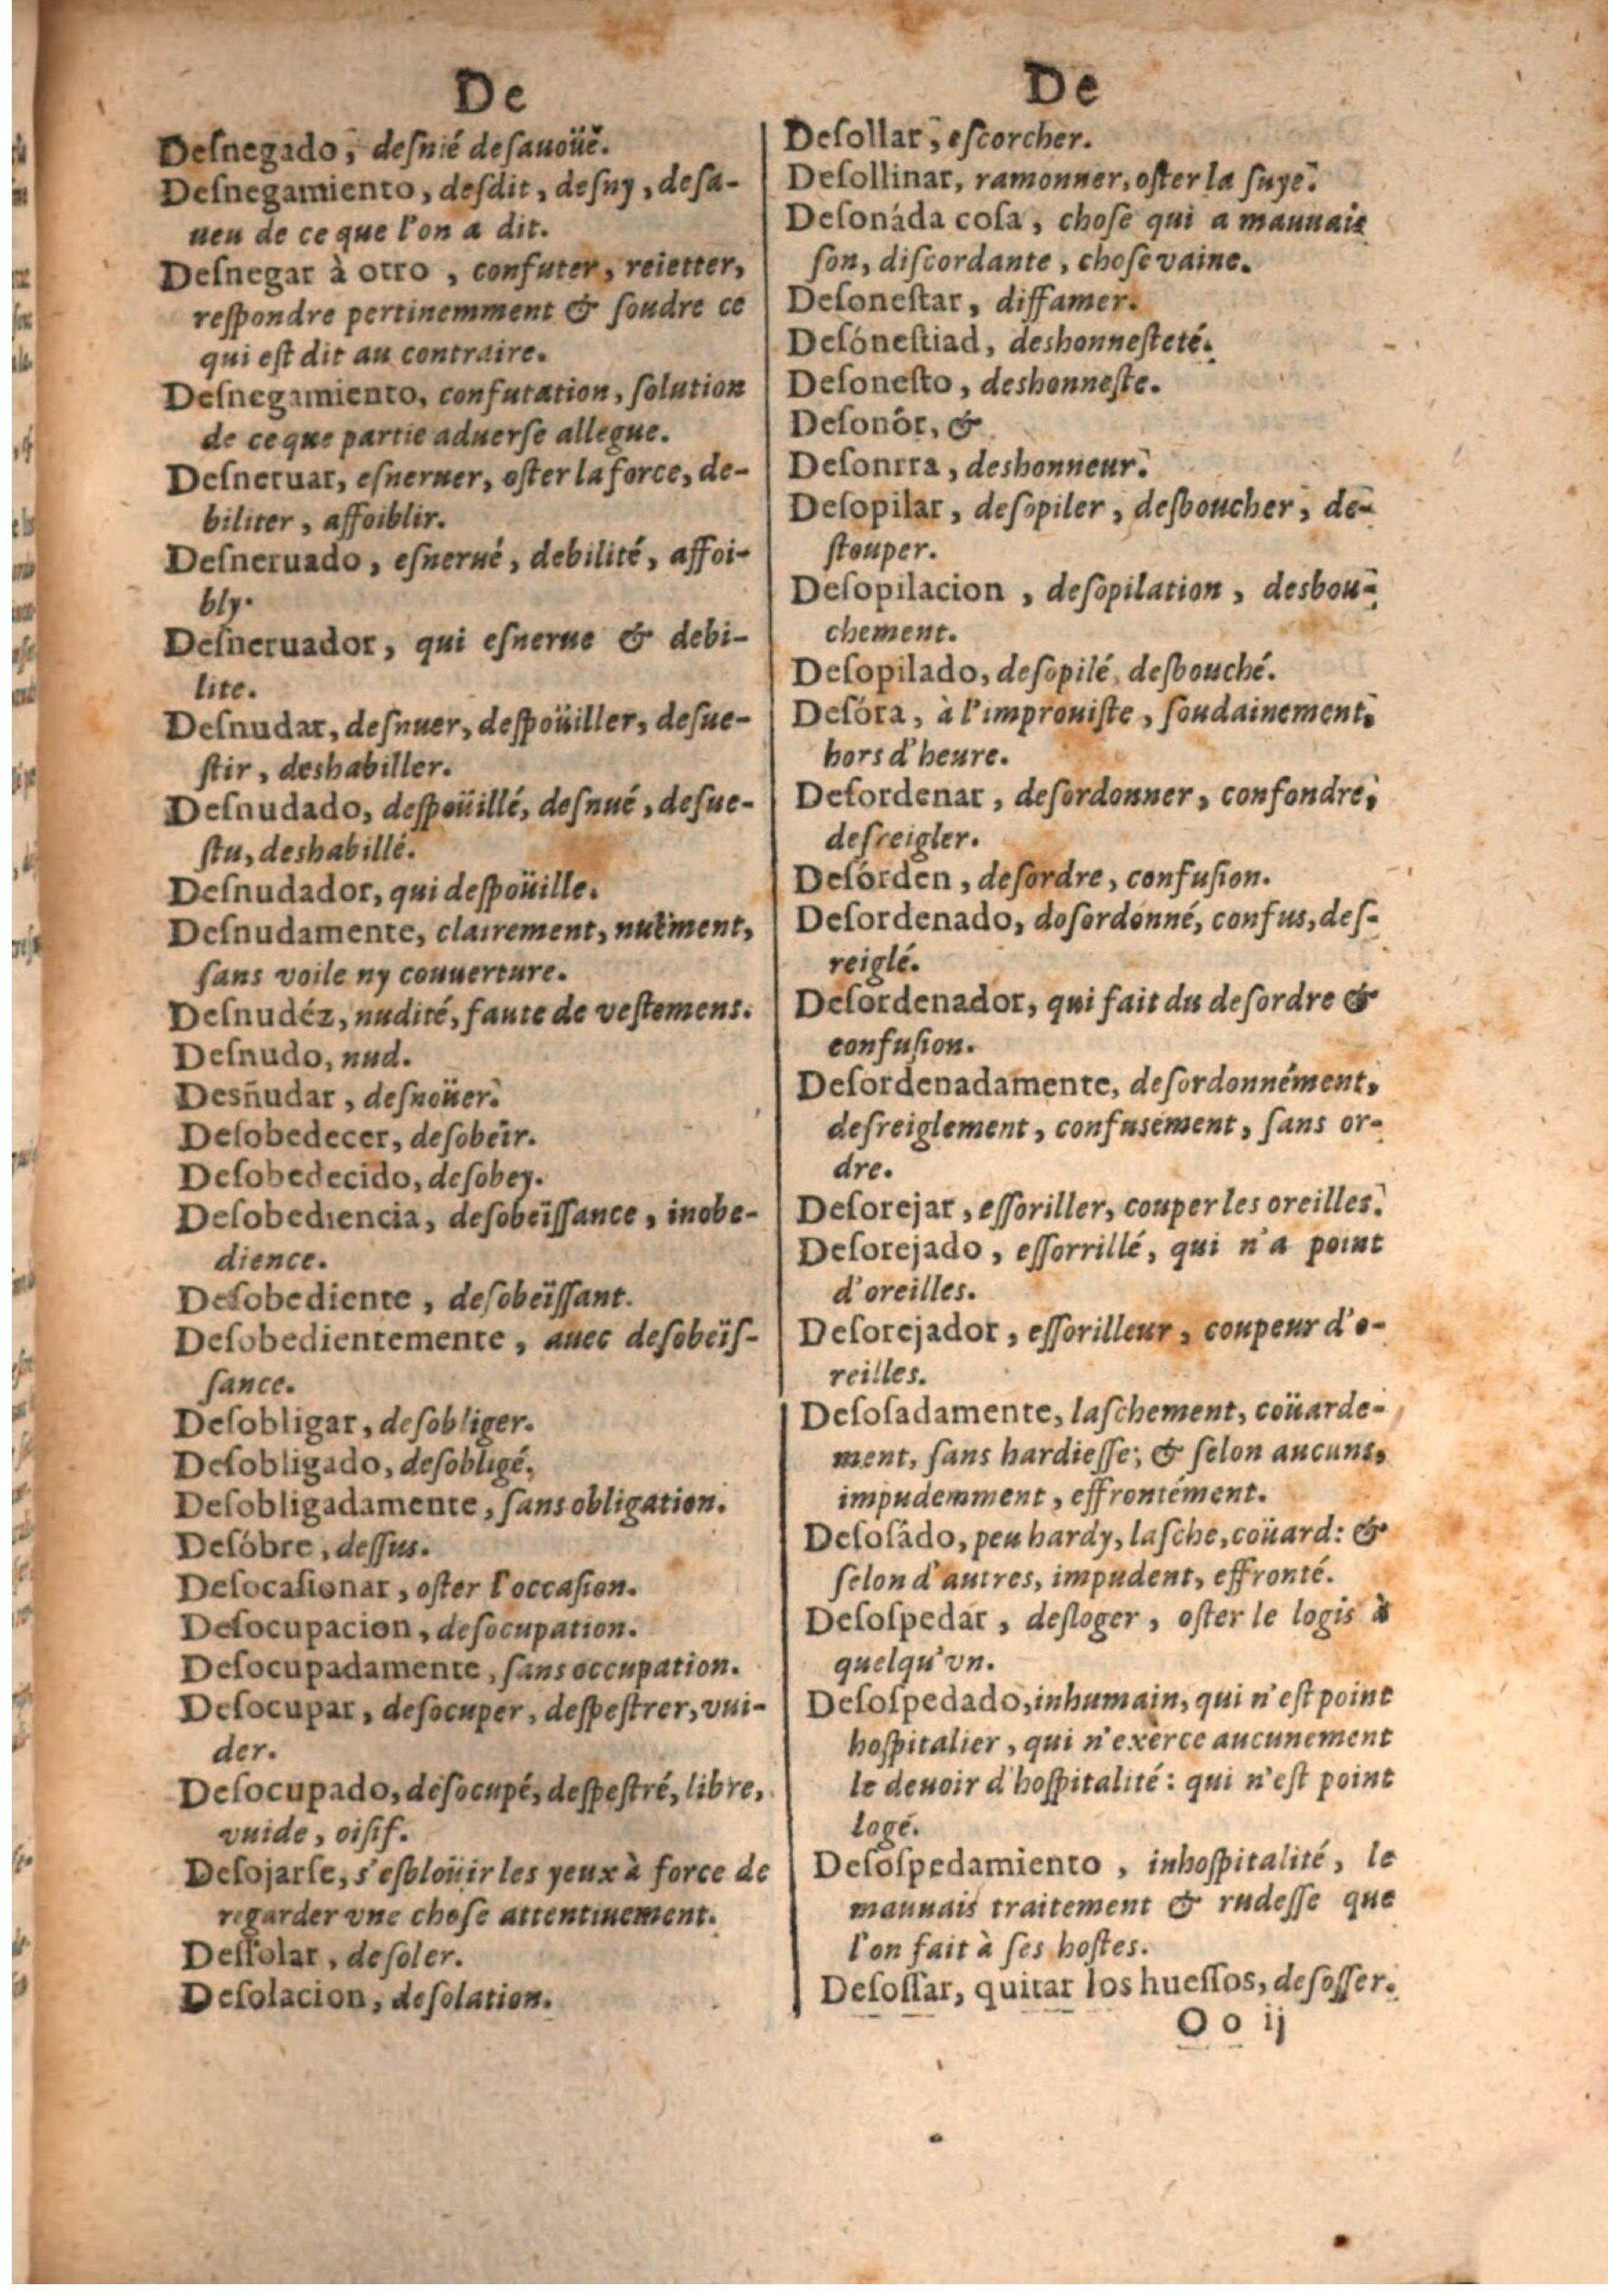 De
Deſnegado, deſnié deſauoüé.
Deſnegamiento, deſdit, deſny, deſa-
ueu de ce que l'on a dit.
Deſnegar à otro, confuter, reietter,
reſpondre pertinemment & ſoudre ce
qui eſt dit au contraire.
Deſnegamiento, confutation, ſolution
de ce que partie aduerſe allegue.
Deſneruar, eſneruer, oſter la force, de-
biliter, affoiblir.
Deſneruado, eſnerué, debilité, affoi-
bly.
Deſneruador, qui eſnerue & debi-
lite.
Deſnudar, deſnuer, deſpoüiller, deſue-
ſtir, deshabiller.
Deſnudado, deſpoüillé, deſnué, deſue-
ſtu, deshabillé.
Deſnudador, qui deſpoüille.
Deſnudamente, clairement, nuëment,
ſans voile ny couuerture.
Deſnudéz, nudité, faute de veſtemens.
Deſnudo, nud.
Desñudar, deſnoüer.
Deſobedecer, deſobeïr.
Deſobedecido, deſobey.
Deſobediencia, deſobeïſſance, inobe-
dience.
Deſobediente, deſobeïſſant.
Deſobedientemente, auec deſobeïſ-
ſance.
Deſobligar, deſobliger.
Deſobligado, deſobligé.
Deſobligadamente, ſans obligation.
Deſóbre, deſſus.
Deſocaſionar, oſter l'occaſion.
Deſocupacion, deſocupation.
Deſocupadamente, ſans occupation.
Deſocupar, deſocuper, deſpeſtrer, vui-
der.
Deſocupado, deſocupé, deſpeſtré, libre,
vuide, oiſif.
Deſojarſe, s'eſbloüir les yeux à force de
regarder vne choſe attentiuement.
Deſſolar, deſoler.
Deſolacion, deſolation.
De
Deſollar, eſcorcher.
Deſollinar, ramonner, oſter la ſuye.
Deſonáda coſa, choſe qui a mauuais
ſon, diſcordante, choſe vaine.
Deſoneſtar, diffamer.
Deſóneſtiad, deshonneſteté.
Deſoneſto, deshonneſte.
Deſonôr, &
Deſonrra, deshonneur.
Deſopilar, deſopiler, deſboucher, de-
ſtouper.
Deſopilacion, deſopilation, desbou-
chement.
Deſopilado, deſopilé, deſbouché.
Deſóra, à l'improuiſte, ſoudainement,
hors d'heure.
Deſordenar, deſordonner, confondre,
deſreigler.
Deſórden, deſordre, confuſion.
Deſordenado, doſordonné, confus, deſ-
reiglé.
Deſordenador, qui fait du deſordre &
confuſion.
Deſordenadamente, deſordonnément,
deſreiglement, confusément, ſans or-
dre.
Deſorejar, eſſoriller, couper les oreilles.
Deſorejado, eſſorrillé, qui n'a point
d'oreilles.
Deſorejador, eſſorilleur, coupeur d'o-
reilles.
Deſoſadamente, laſchement, coüarde-
ment, ſans hardieſſe; & ſelon aucuns,
impudemment, effrontément.
Deſoſádo, peu hardy, laſche, coüard: &
ſelon d'autres, impudent, effronté.
Deſoſpedar, deſloger, oſter le logis à
quelqu'vn.
Deſoſpedado, inhumain, qui n'eſt point
hoſpitalier, qui n'exerce aucunement
le deuoir d'hoſpitalité: qui n'eſt point
logé.
Deſoſpedamiento, inhoſpitalité, le
mauuais traitement & rudeſſe que
l'on fait à ſes hoſtes.
Deſoſſar, quitar los hueſſos, deſoſſer.
O o ij